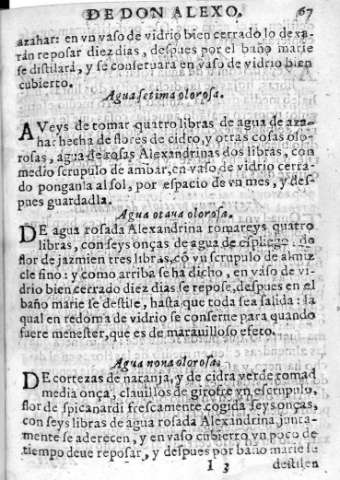 DE DON ALEXO. 67
azahar: en vn vaso de vidrio bien cerrado lo dexa-
rán reposar diez dias, despues por el baño marie
se distilará, y se conseruara en vaso de vidrio bien
cubierto.
Agua setima olorosa.
AVeys de tomar quatro libras de agua de aza-
har hecha de flores de cidro, y otras cosas olo-
rosas, agua de rosas Alexandrinas dos libras, con
medio scrupulo de ambar, en vaso de vidrio cerra-
do ponganla al sol, por espacio de vn mes, y des-
pues guardadla.
Agua otaua olorosa.
DE agua rosada Alexandrina tomareys quatro
libras, con seys onças de agua de espliego, de
flor de jazmien tres libras, cõ vn scrupulo de almiz
cle fino: y como arriba se ha dicho, en vaso de vi-
drio bien cerrado diez dias se repose, despues en el
baño marie se destile, hasta que toda sea salida: la
qual en redoma de vidrio se conserue para quando
fuere menester, que es de marauilloso efeto.
Agua nona olorosa.
DE cortezas de naranja, y de cidra verde tomad
media onça, clauillos de girofre vn escrupulo,
flor de spicanardi frescamente cogida seys onças,
con seys libras de agua rosada Alexandrina junta-
mente se aderecen, y en vaso cubierto vn poco de
tiempo deue reposar, y despues por baño marie la
I 3 destilen